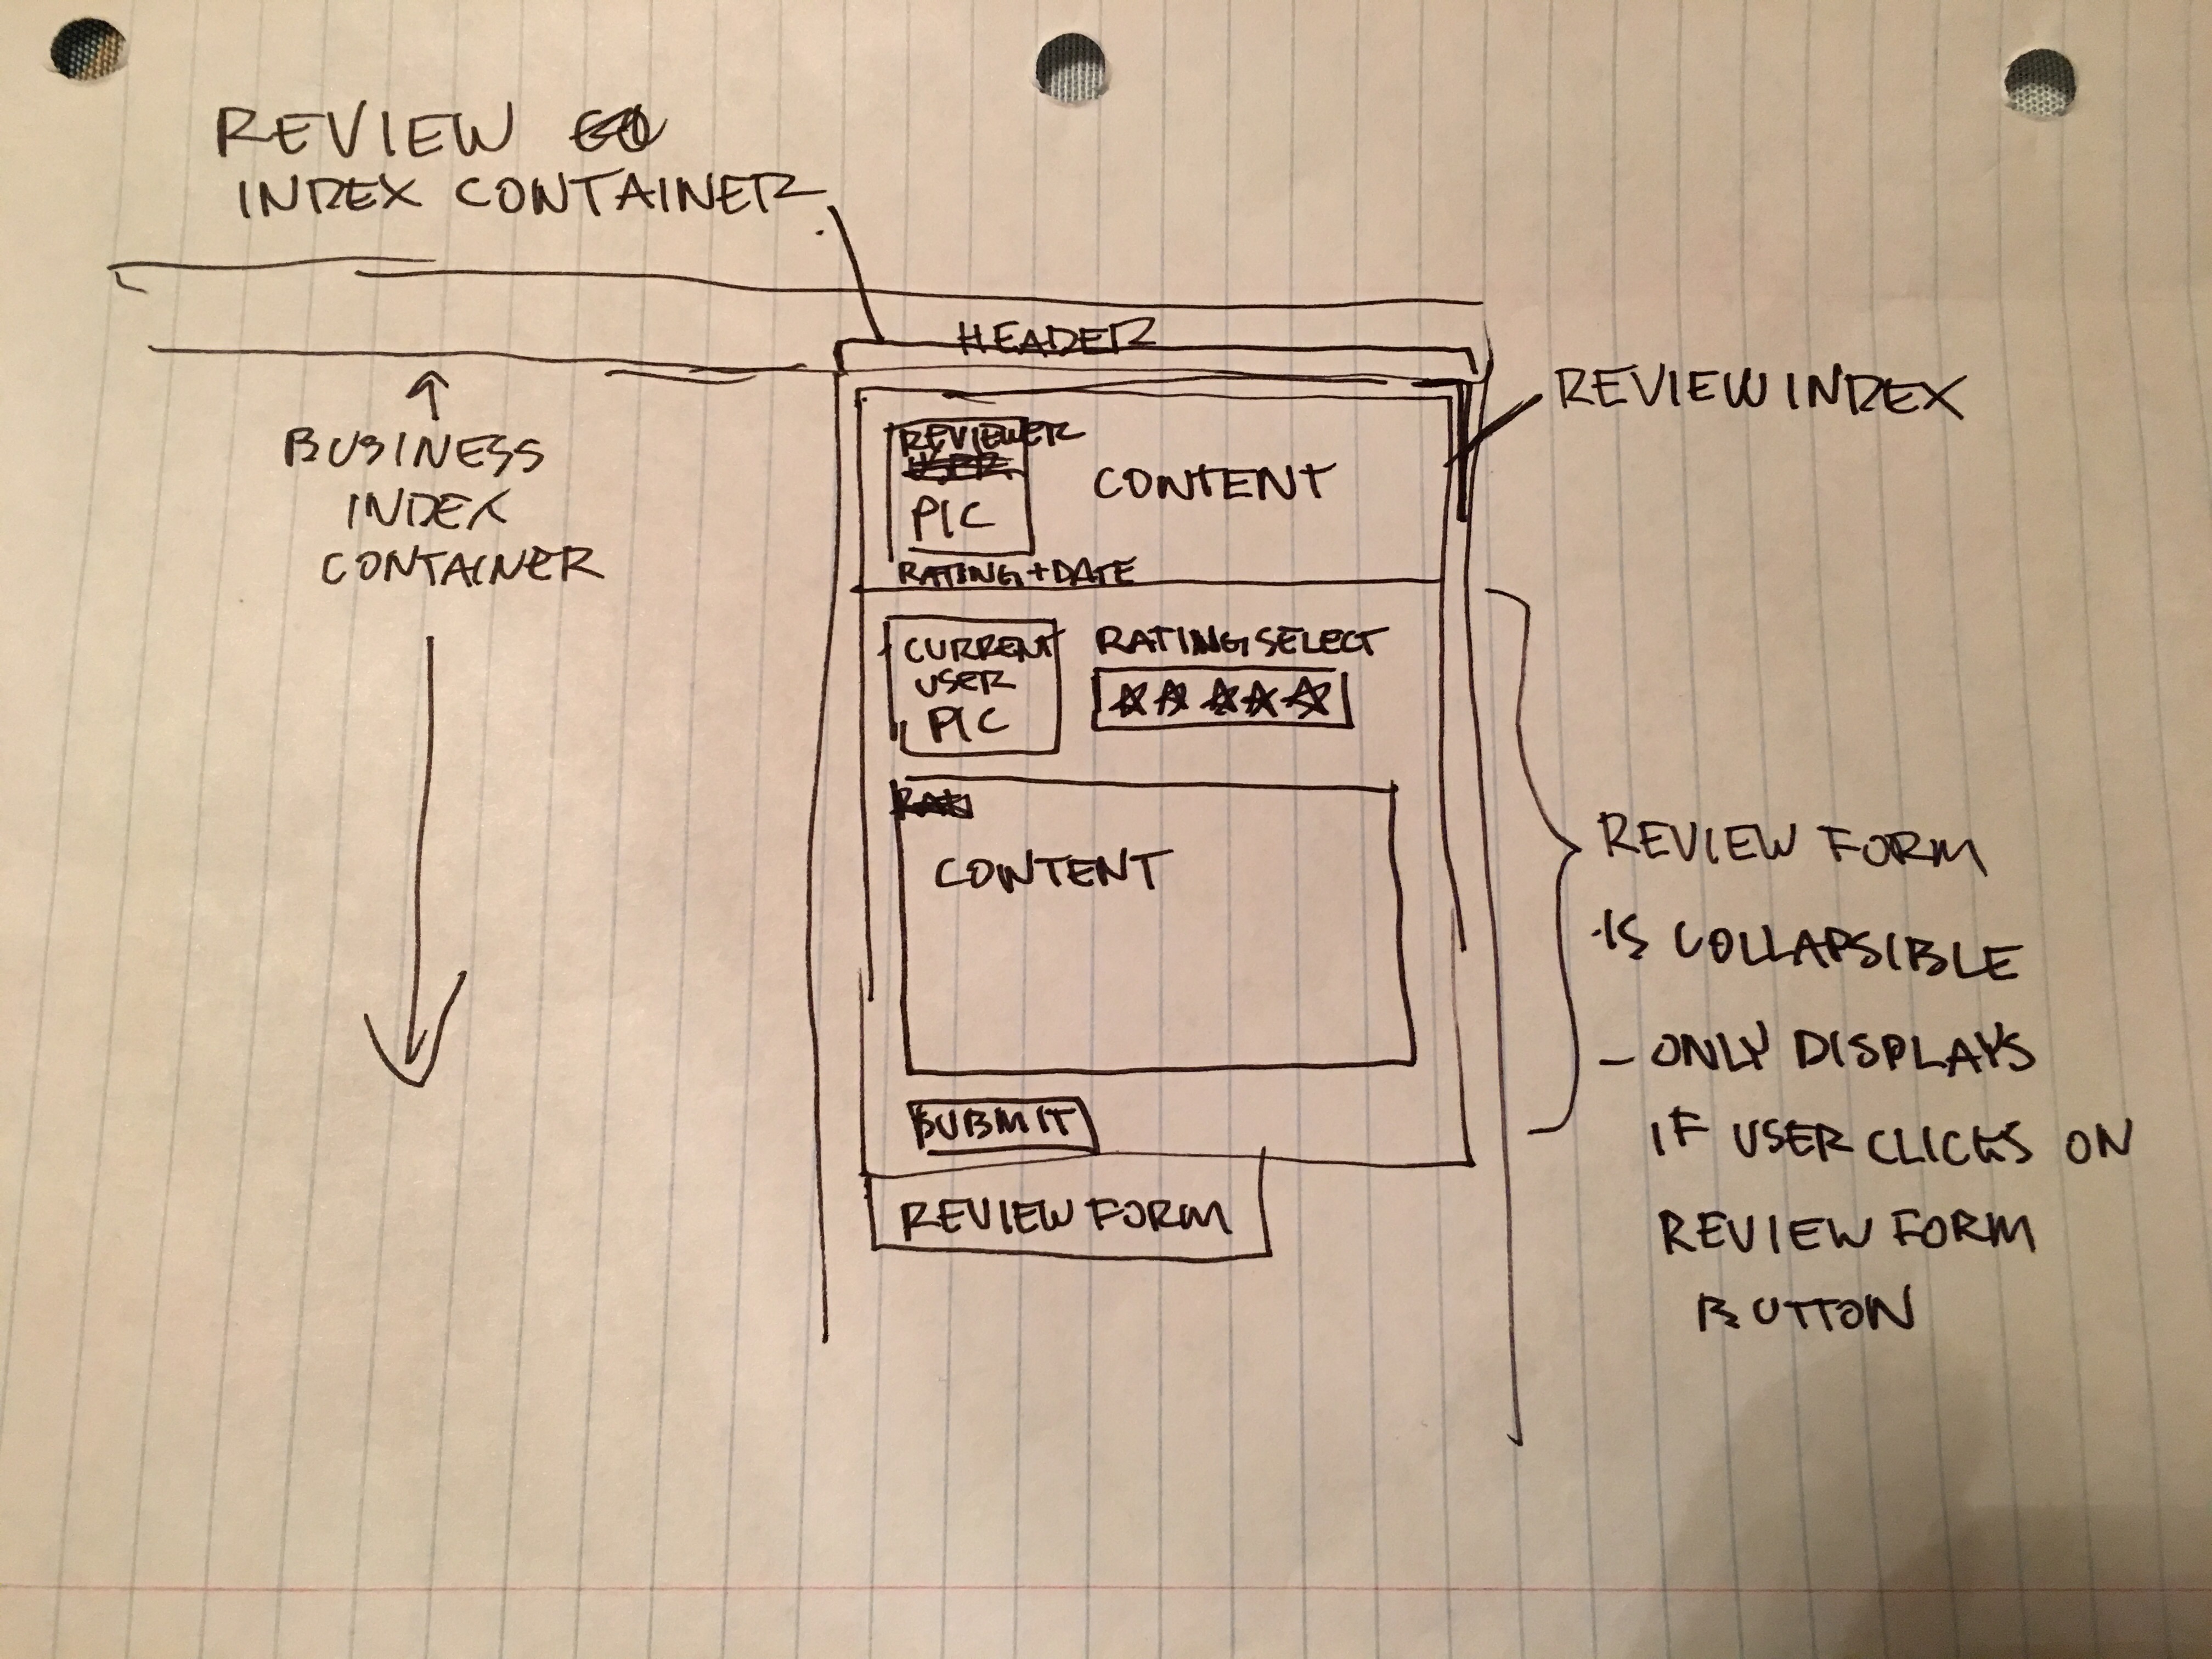 REVIEW
INDEX CONTAINER
HEADER
REVIEW INDEX
BUSINESS
INDEX
CONTAINER
REVIEWER
USER
PIC
CONTENT
RATING + DATE
CURRENT
USER
PIC
RATING SELECT
CONTENT
SUBMIT
REVIEW FORM
REVIEW FORM
IS COLLAPSIBLE
- ONLY DISPLAYS
IF USER CLICKS ON
REVIEW FORM
BUTTON